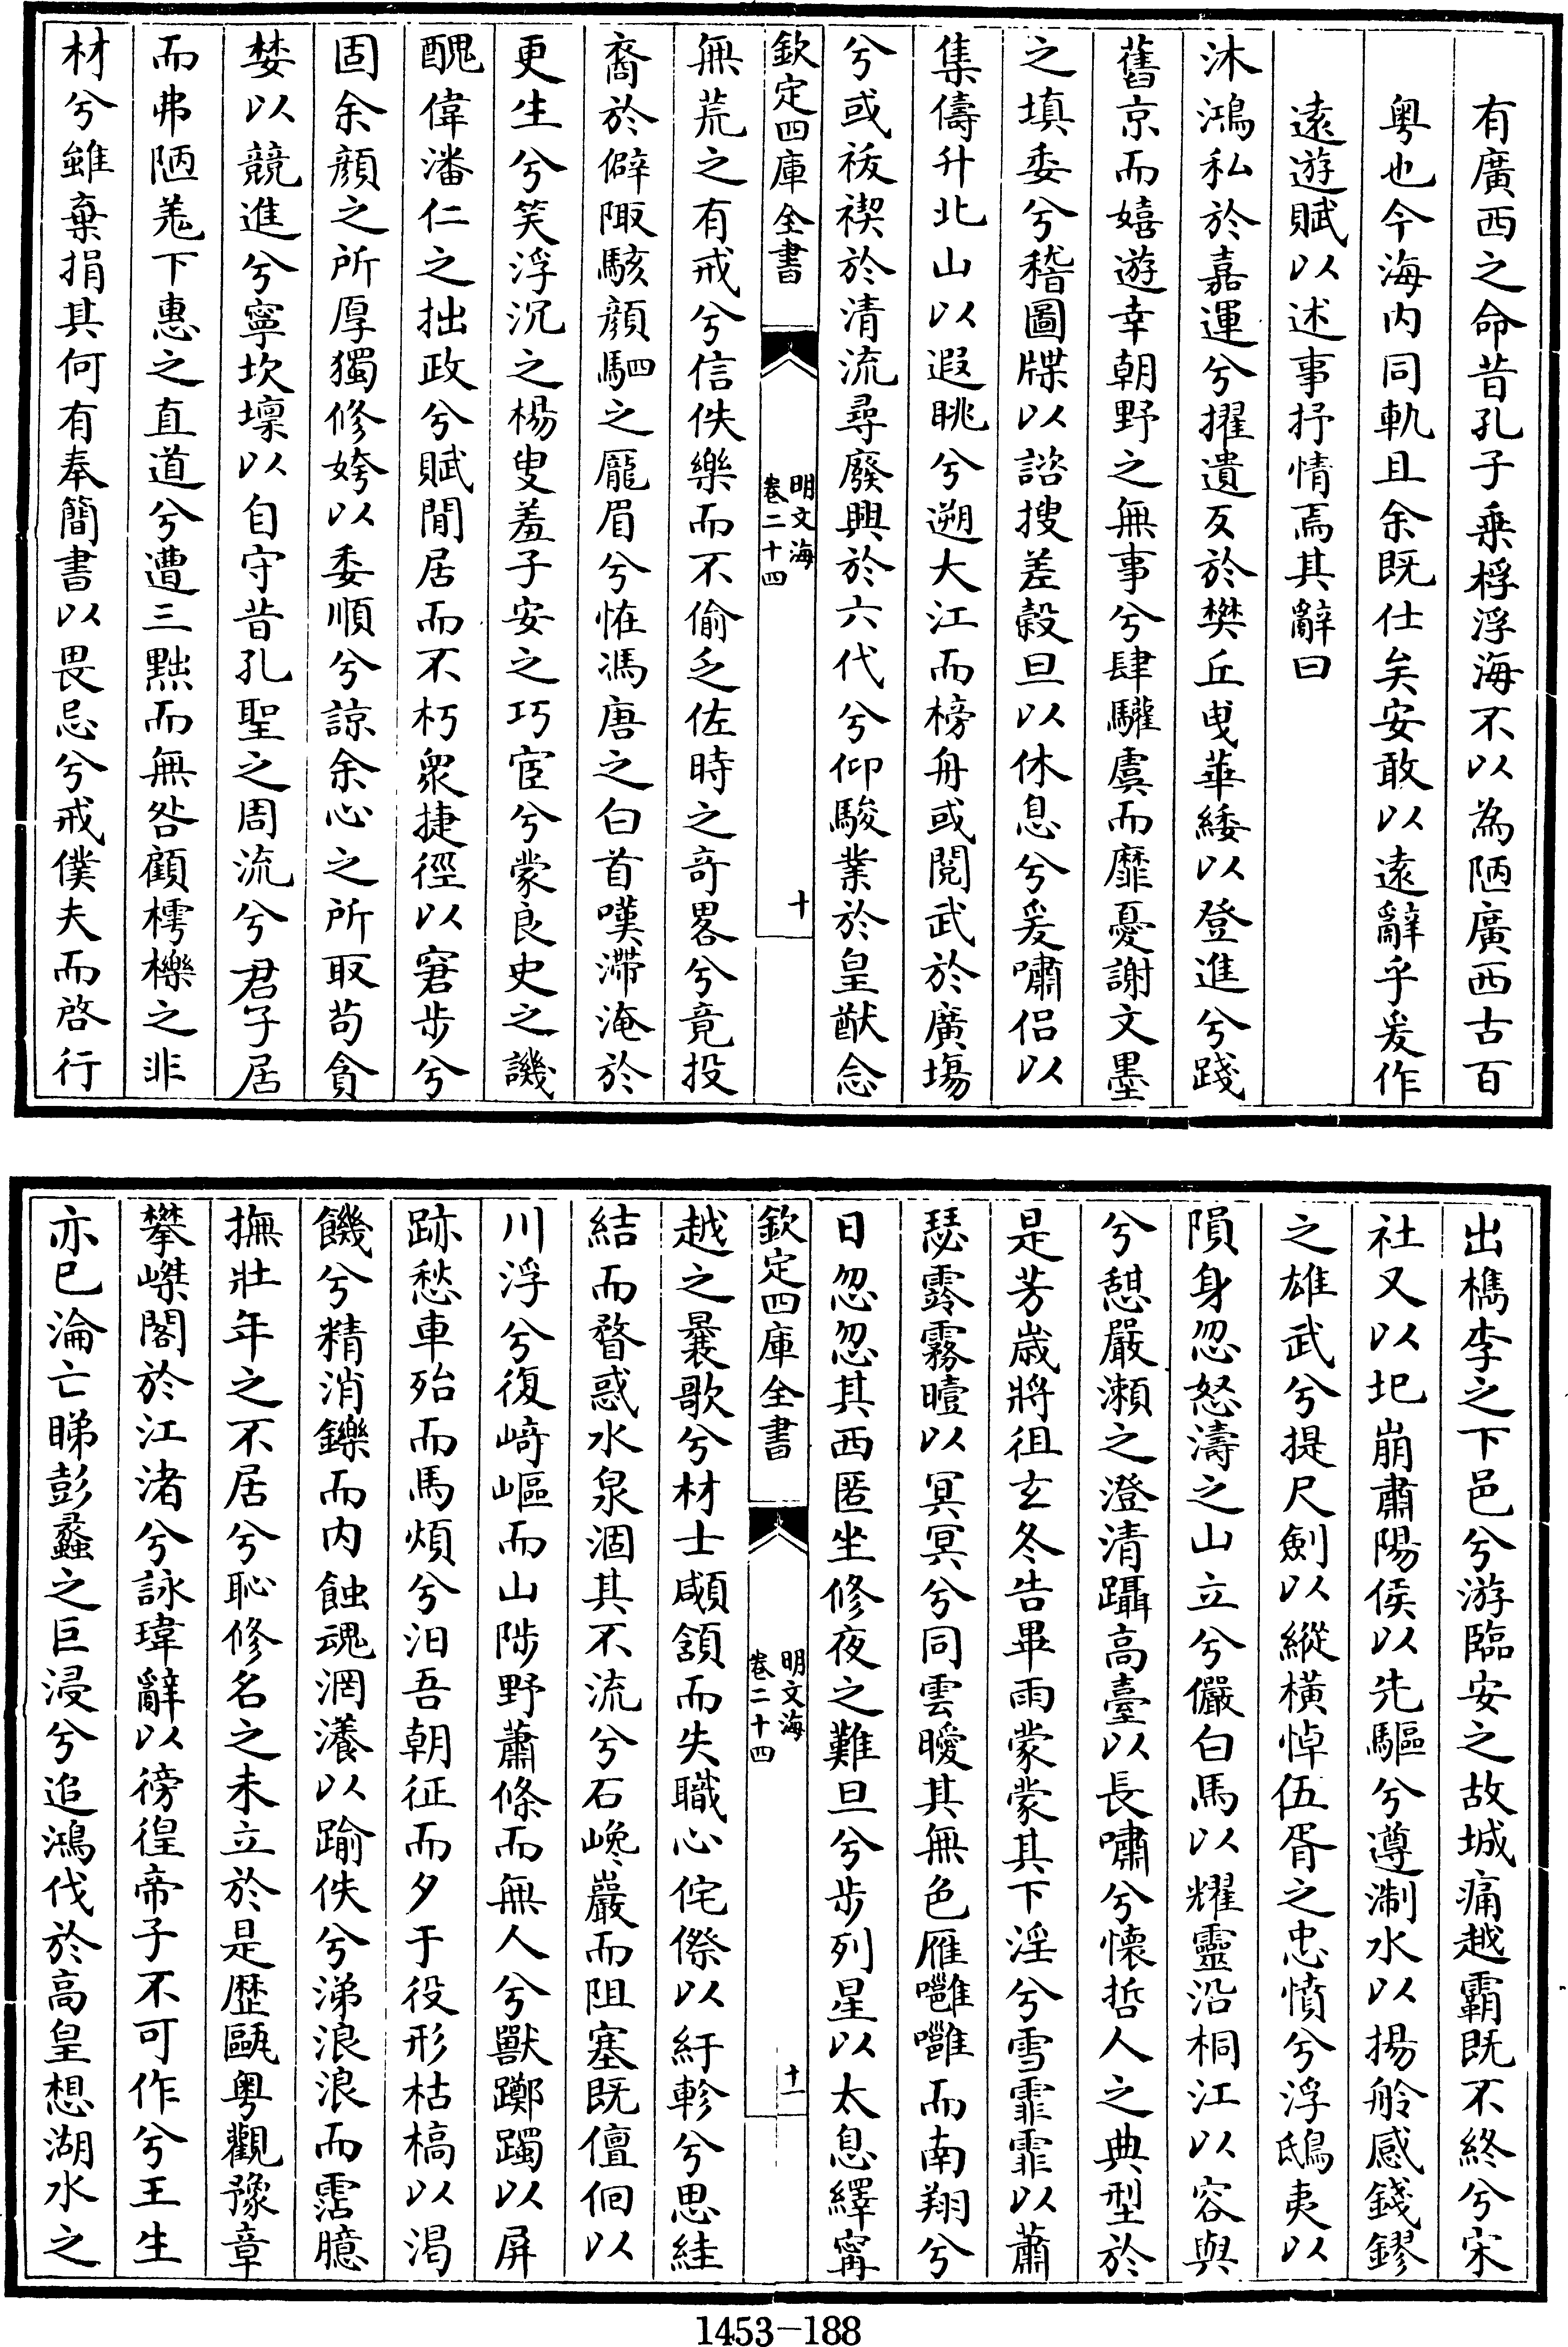 有廣西之命昔孔子乗桴浮海不以為陋廣西古百
粤也今海内同軌且余既仕矣安敢以遠辭乎爰作
遠遊賦以述事抒情焉其辭曰
沐鴻私於嘉運兮擢遺亥於樊丘曳華緌以登進兮踐
舊京而嬉遊幸朝野之無事兮肆驩虞而靡憂謝文墨
之填委兮稽圖牒以諮搜差穀旦以休息兮爰嘯侣以
集儔升北山以遐眺兮遡大江而榜舟或閱武於廣塲
兮或祓禊於清流尋廢興於六代兮仰駿業於皇猷念
欽定四庫全書
明文海
卷二十四
十
無荒之有戒兮信佚樂而不偷乏佐時之奇畧兮竟投
裔於僻陬駭顔駟之厖眉兮恠馮唐之白首嘆滯淹於
更生兮笑浮沉之楊叟羞子安之巧宦兮蒙良史之譏
醜偉潘仁之拙政兮賦閒居而不朽衆捷徑以窘步兮
固余顔之所厚獨修姱以委順兮諒余心之所取茍貪
婪以競進兮寧坎壈以自守昔孔聖之周流兮君子居
而弗陋羗下惠之直道兮遭三黜而無咎顧樗櫟之非
材兮雖棄捐其何有奉簡書以畏忌兮戒僕夫而啓行
出檇李之下邑兮游臨安之故城痛越霸既不終兮宋
社又以圯崩肅陽侯以先驅兮遵淛水以揚舲感錢鏐
之雄武兮提尺劍以縱横悼伍胥之忠憤兮浮鴟夷以
隕身忽怒濤之山立兮儼白馬以耀靈沿桐江以容與
兮憇嚴瀬之澄清躡高臺以長嘯兮懷哲人之典型於
是芳歳將徂玄冬告畢雨蒙蒙其下淫兮雪霏霏以蕭
瑟霧霧曀以冥冥兮同雲曖其無色雁嗈嗈而南翔兮
日忽忽其西匿坐修夜之難旦兮步列星以太息繹甯
欽定四庫全書
明文海
卷二十四
十一
越之曩歌兮材士顑頷而失職心侘傺以紆軫兮思絓
結而瞀惑水泉涸其不流兮石巉巖而阻塞既儃佪以
川浮兮復崎嶇而山陟野蕭條而無人兮獸躑躅以屏
跡愁車殆而馬煩兮汩吾朝征而夕于役形枯槁以渴
饑兮精消鑠而内蝕魂㒺瀁以踰佚兮涕浪浪而霑臆
撫壯年之不居兮恥修名之未立於是歴甌粤觀豫章
攀嵥閣於江渚兮詠瑋辭以徬徨帝子不可作兮王生
亦已淪亡睇彭蠡之巨浸兮追鴻伐於高皇想湖水之
1453-188